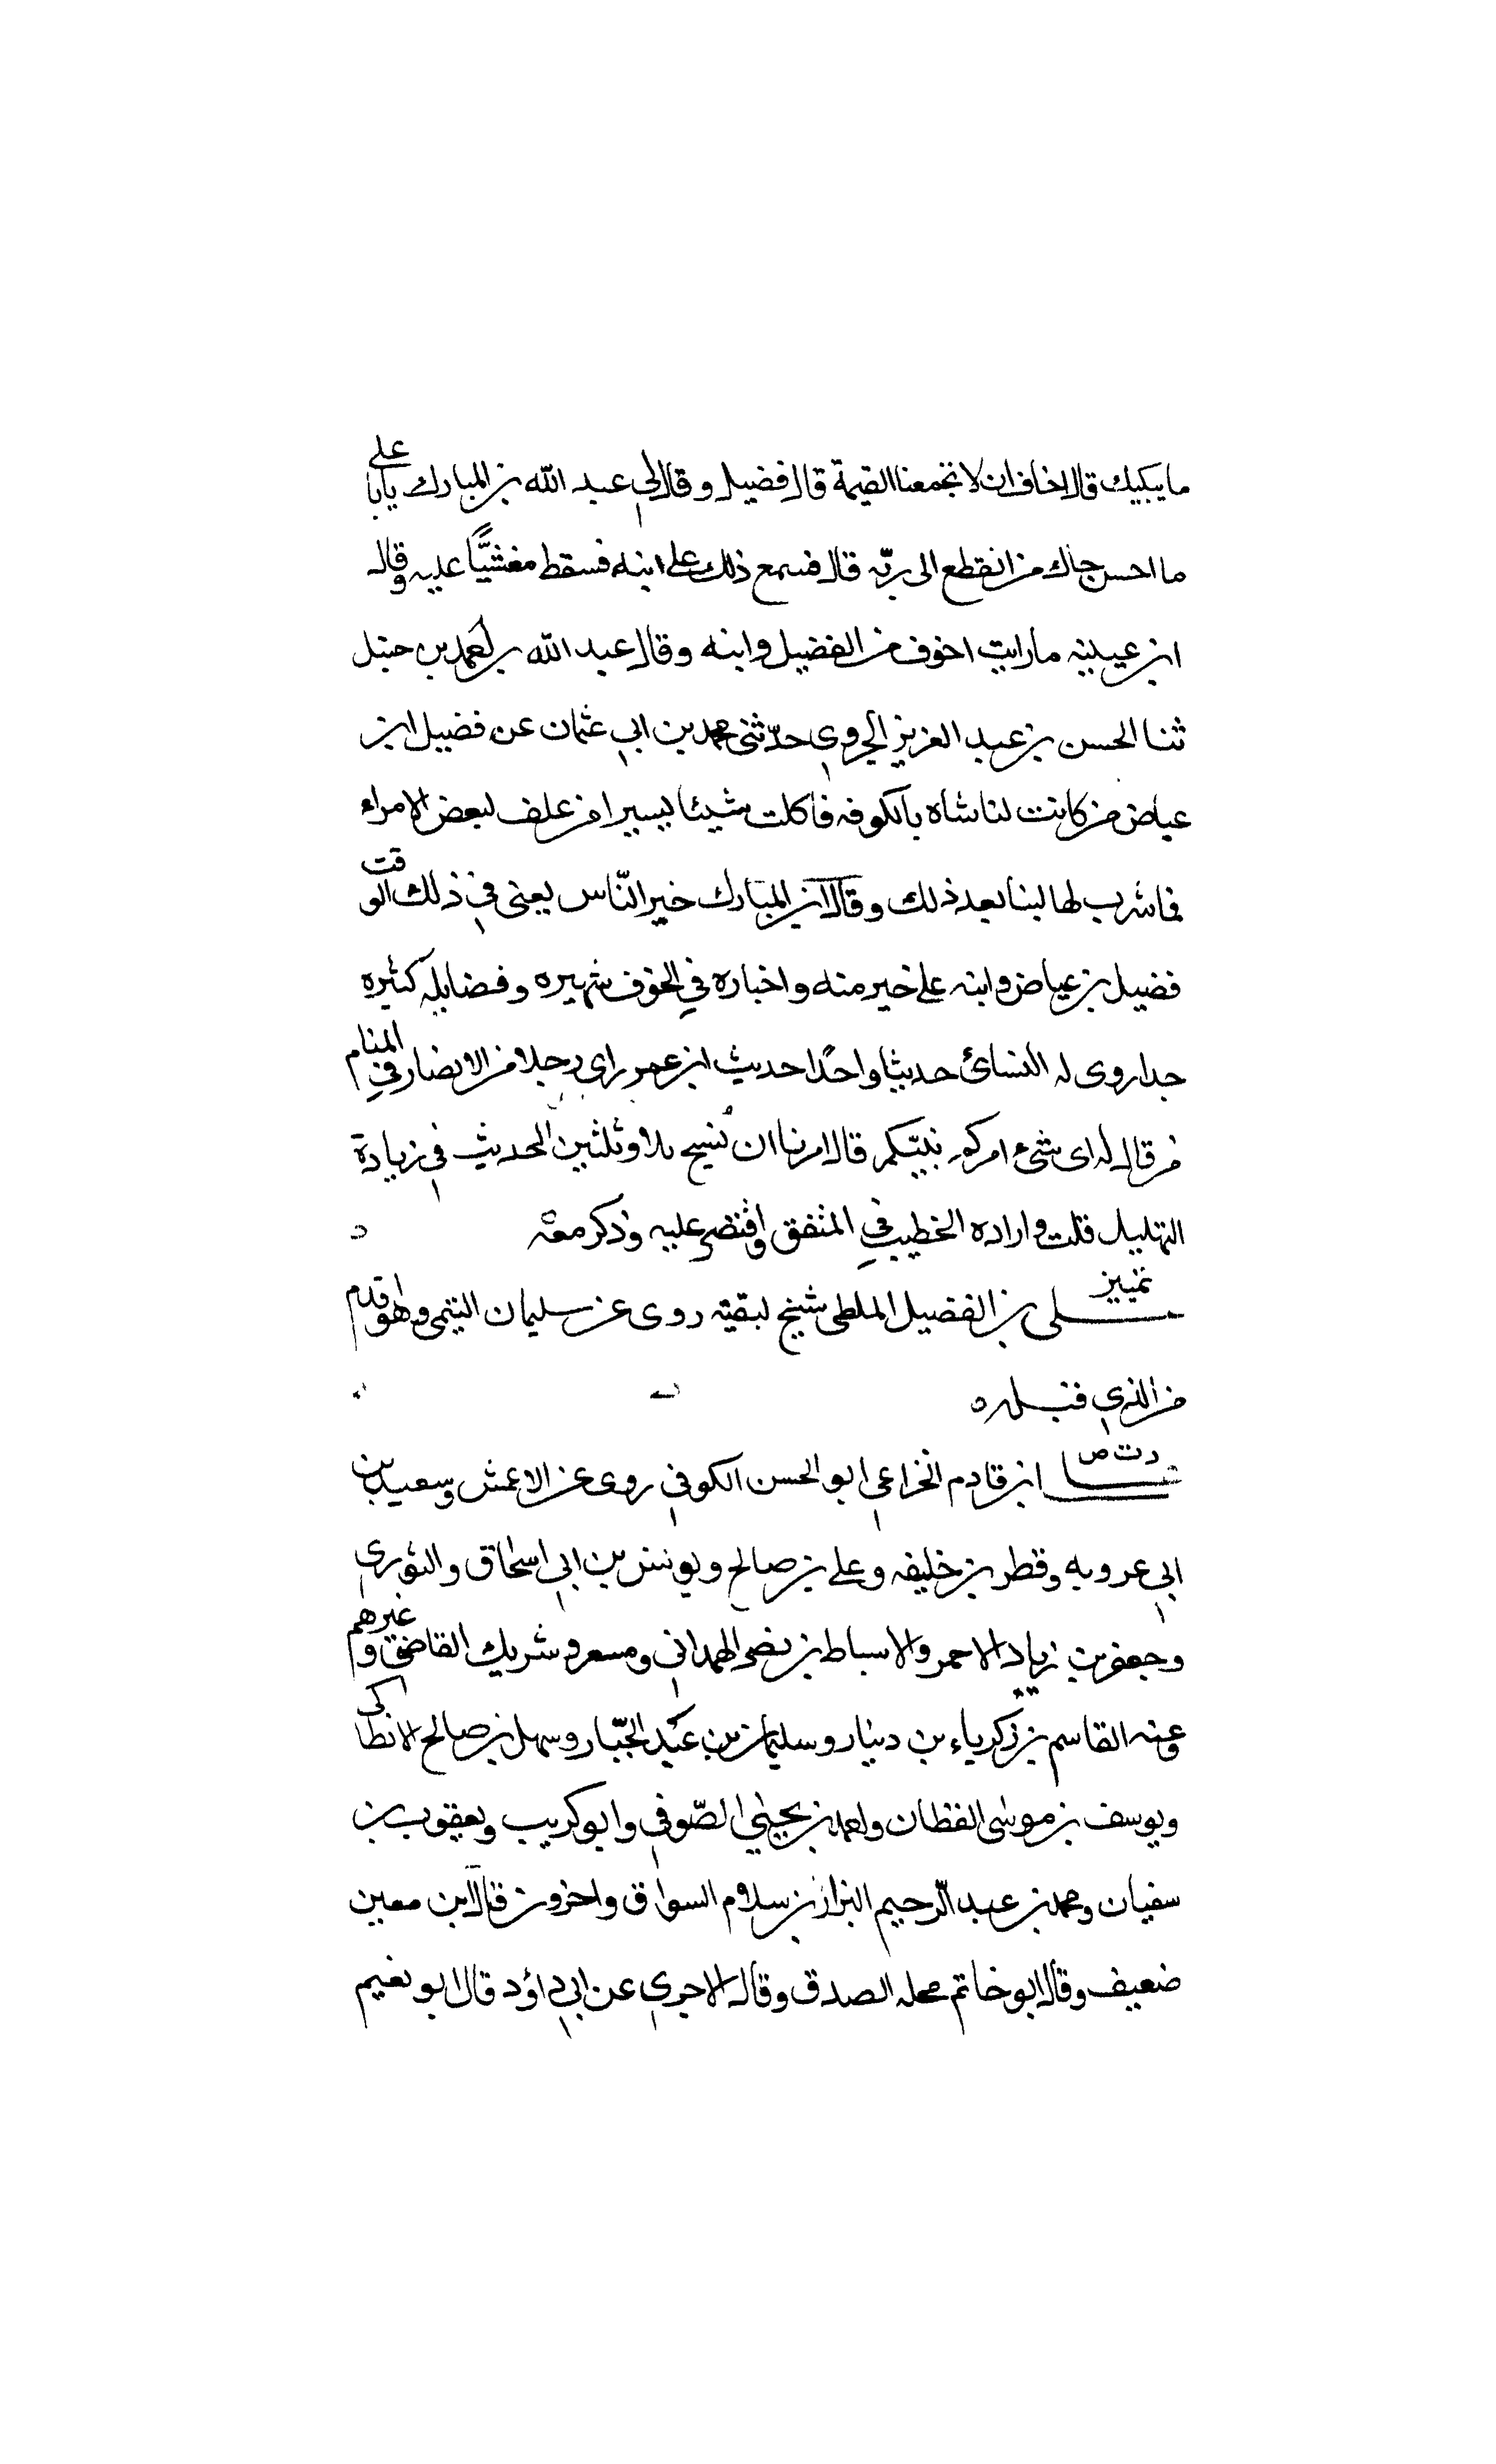 ما يبكيك قال اخاف ان لا تجمعنا القيمة قال فضيل وقال لي عبد الله بن المبارك يابا علي
ما احسن حال من انقطع الى ربّه قال فسمع ذلك علي ابنه فسقط مغشيًّا عليه وقال
ابن عيينه ما رايت اخوف من الفضيل وابنه وقال عبد الله بن احمد بن حنبل
ثنا الحسن بن عبد العزيز الجروي حدّثنى محمد بن ابي عثمان عن فضيل ابن
عياض من كانت لنا شاه بالكوفه فاكلت شيئا يسيرا من علف لبعض الامراء
فما شرب لها لبنا بعد ذلك وقال ابن المبارك خير النّاس يعنى في ذلك الوقت
فضيل بن عياض وابنه علي خير منه واخباره في الخوف شهيره وفضايله كثيره
جدا روى له النسائ حديثا واحدًا حديث ابن عمر راى رجلا من الانصار في المنام
من قال له اى شئ امركم نبيّكم قال امرنا ان نسبح ثلاثا وثلثين الحديث في زيادة
التهليل قلت وارده الخطيب في المتفق واقتصر عليه وذكر معه
تمييز
علي بن الفضيل الملطى شيخ لبقيّه روى عن سليمان التيمى وهو اقدم
من الذي قبله ه
د ت ص
علي ابن قادم الخزاعي ابو الحسن الكوفي روى عن الاعمش وسعيد بن
ابي عروبه وقطر بن خليفه وعلي بن صالح ويونس بن ابي اسحاق والثوري
وجعفر بن زياد الاحمر والاسباط بن نصر الهمداني ومسعر وشريك القاضي وغيرهم
وعنه القاسم بن زكرياء بن دينار وسليمان بن عبد الجبّار وسهل بن صالح الانطاكي
ويوسف بن موسى القطان واحمد بن يحيى الصّوفي وابو كريب ويعقوب بن
سفيان ومحمد بن عبد الرّحيم البزاز بن سلام السواق واخرون قال ابن معين
ضعيف وقال ابو خاتم محله الصدق وقال الاجري عن ابي داؤد قال ابو نعيم